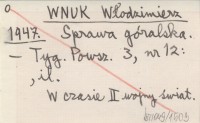 WNUK Włodzimierz
1947. Sprawa góralska.
— Tyg. Powsz. 3, nr 12:
, il.
W czasie II wojny świat.